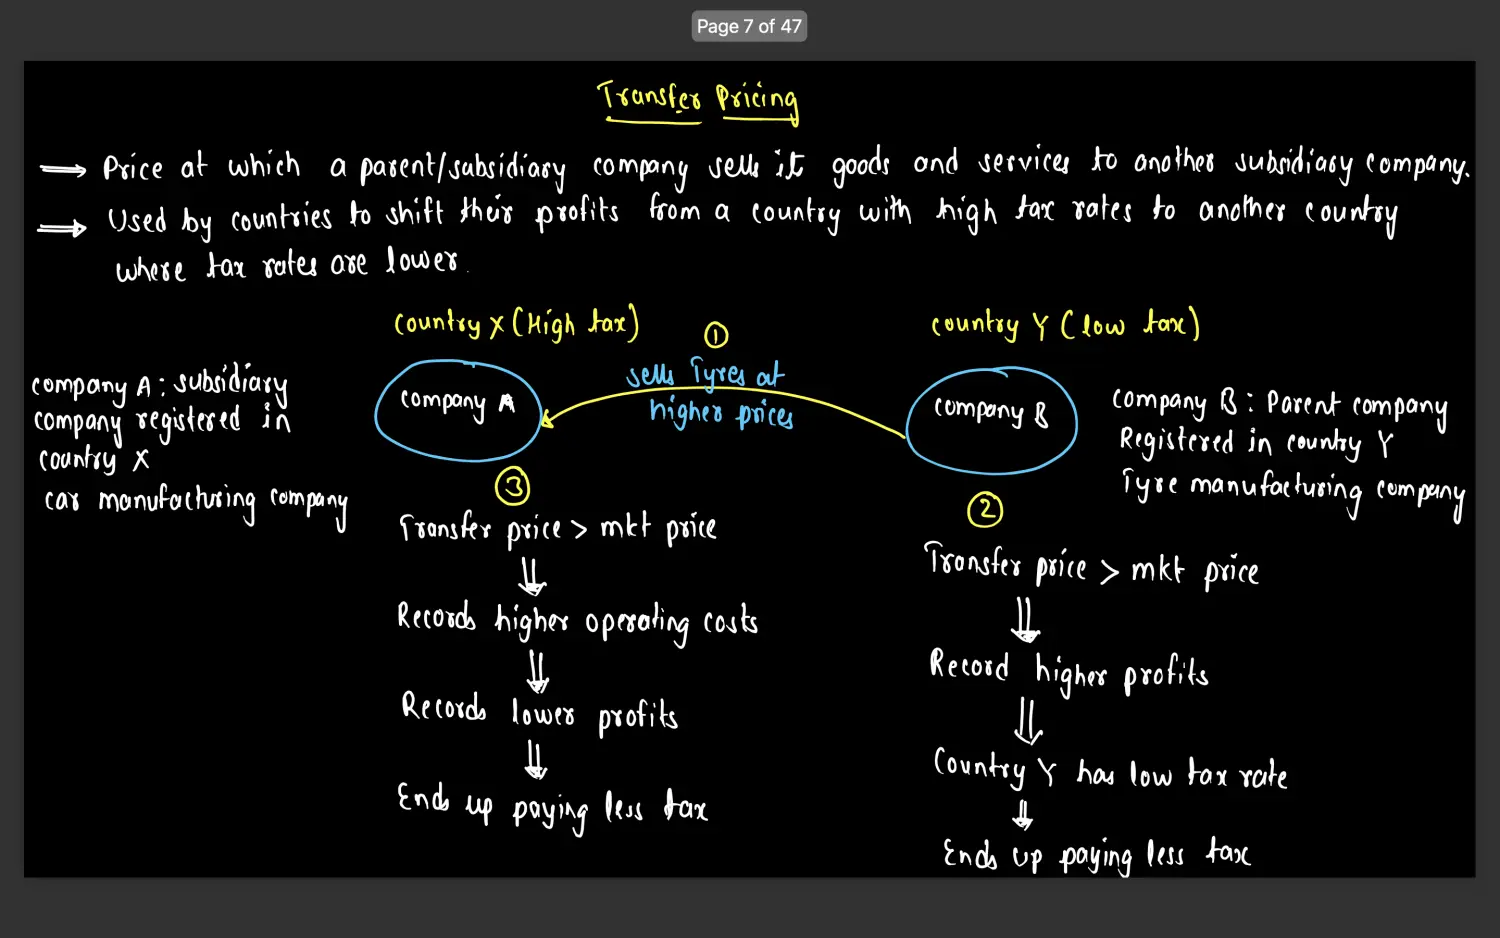 Page 7 of 47
Transfer Pricing
⟹ Price at which a parent/subsidiary company sells it goods and services to another subsidiary company.
⟹ Used by countries to shift their profits from a country with high tax rates to another country
where tax rates are lower.
country X (High tax)
①
country Y (low tax)
company A: subsidiary
company registered in
country X
car manufacturing company
company A
sells Tyres at
higher prices
company B
company B: Parent company
Registered in country Y
Tyre manufacturing company
③
Transfer price > mkt price
⇓
Records higher operating costs
⇓
Records lower profits
⇓
Ends up paying less tax
②
Transfer price > mkt price
⇓
Record higher profits
⇓
Country Y has low tax rate
⇓
Ends up paying less tax